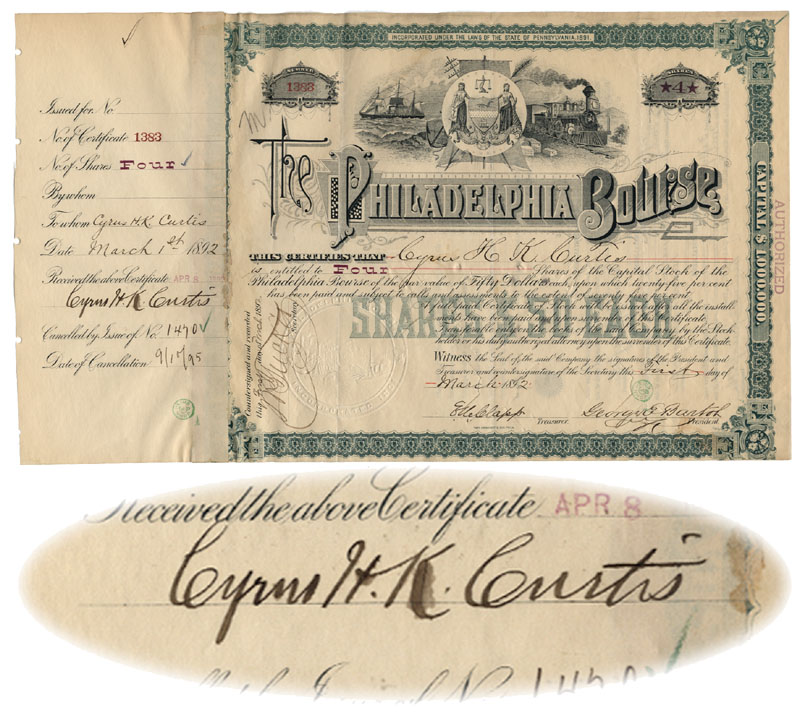 Issued for No
No. of Certificate 1383
No. of Shares Four
By whom
To whom Cyrus H.K. Curtis
Date March 1st 1892
Received the above Certificate APR 8
Cyrus H. K. Curtis
Cancelled by Issue of No.
Date of Cancellation 9/17/95
INCORPORATED UNDER THE LAWS OF THE STATE OF PENNSYLVANIA. 1891.
NUMBER
1383
SHARES
★4★
The Philadelphia Bourse
THIS CERTIFIES THAT Cyrus H. K. Curtis
is entitled to Four Shares of the Capital Stock of the
Philadelphia Bourse of the par value of Fifty Dollars each, upon which twenty-five per cent
has been paid and subject to calls and assessments to the extent of seventy five per cent
Full paid Certificates of Stock will be issued only after all the install
ments have been paid and upon surrender of this Certificate.
Transferable only on the books of the said Company by the Stock
holder or his duly authorized attorney upon the surrender of this Certificate.
Witness the Seal of the said Company the signatures of the President and
Treasurer and countersignature of the Secretary this First day of
March 1892
Treasurer
George E. Bartol
President
Countersigned and recorded
Secretary
SHARES
CAPITAL $1,000,000.
AUTHORIZED
Received the above Certificate APR 8
Cyrus H. K. Curtis